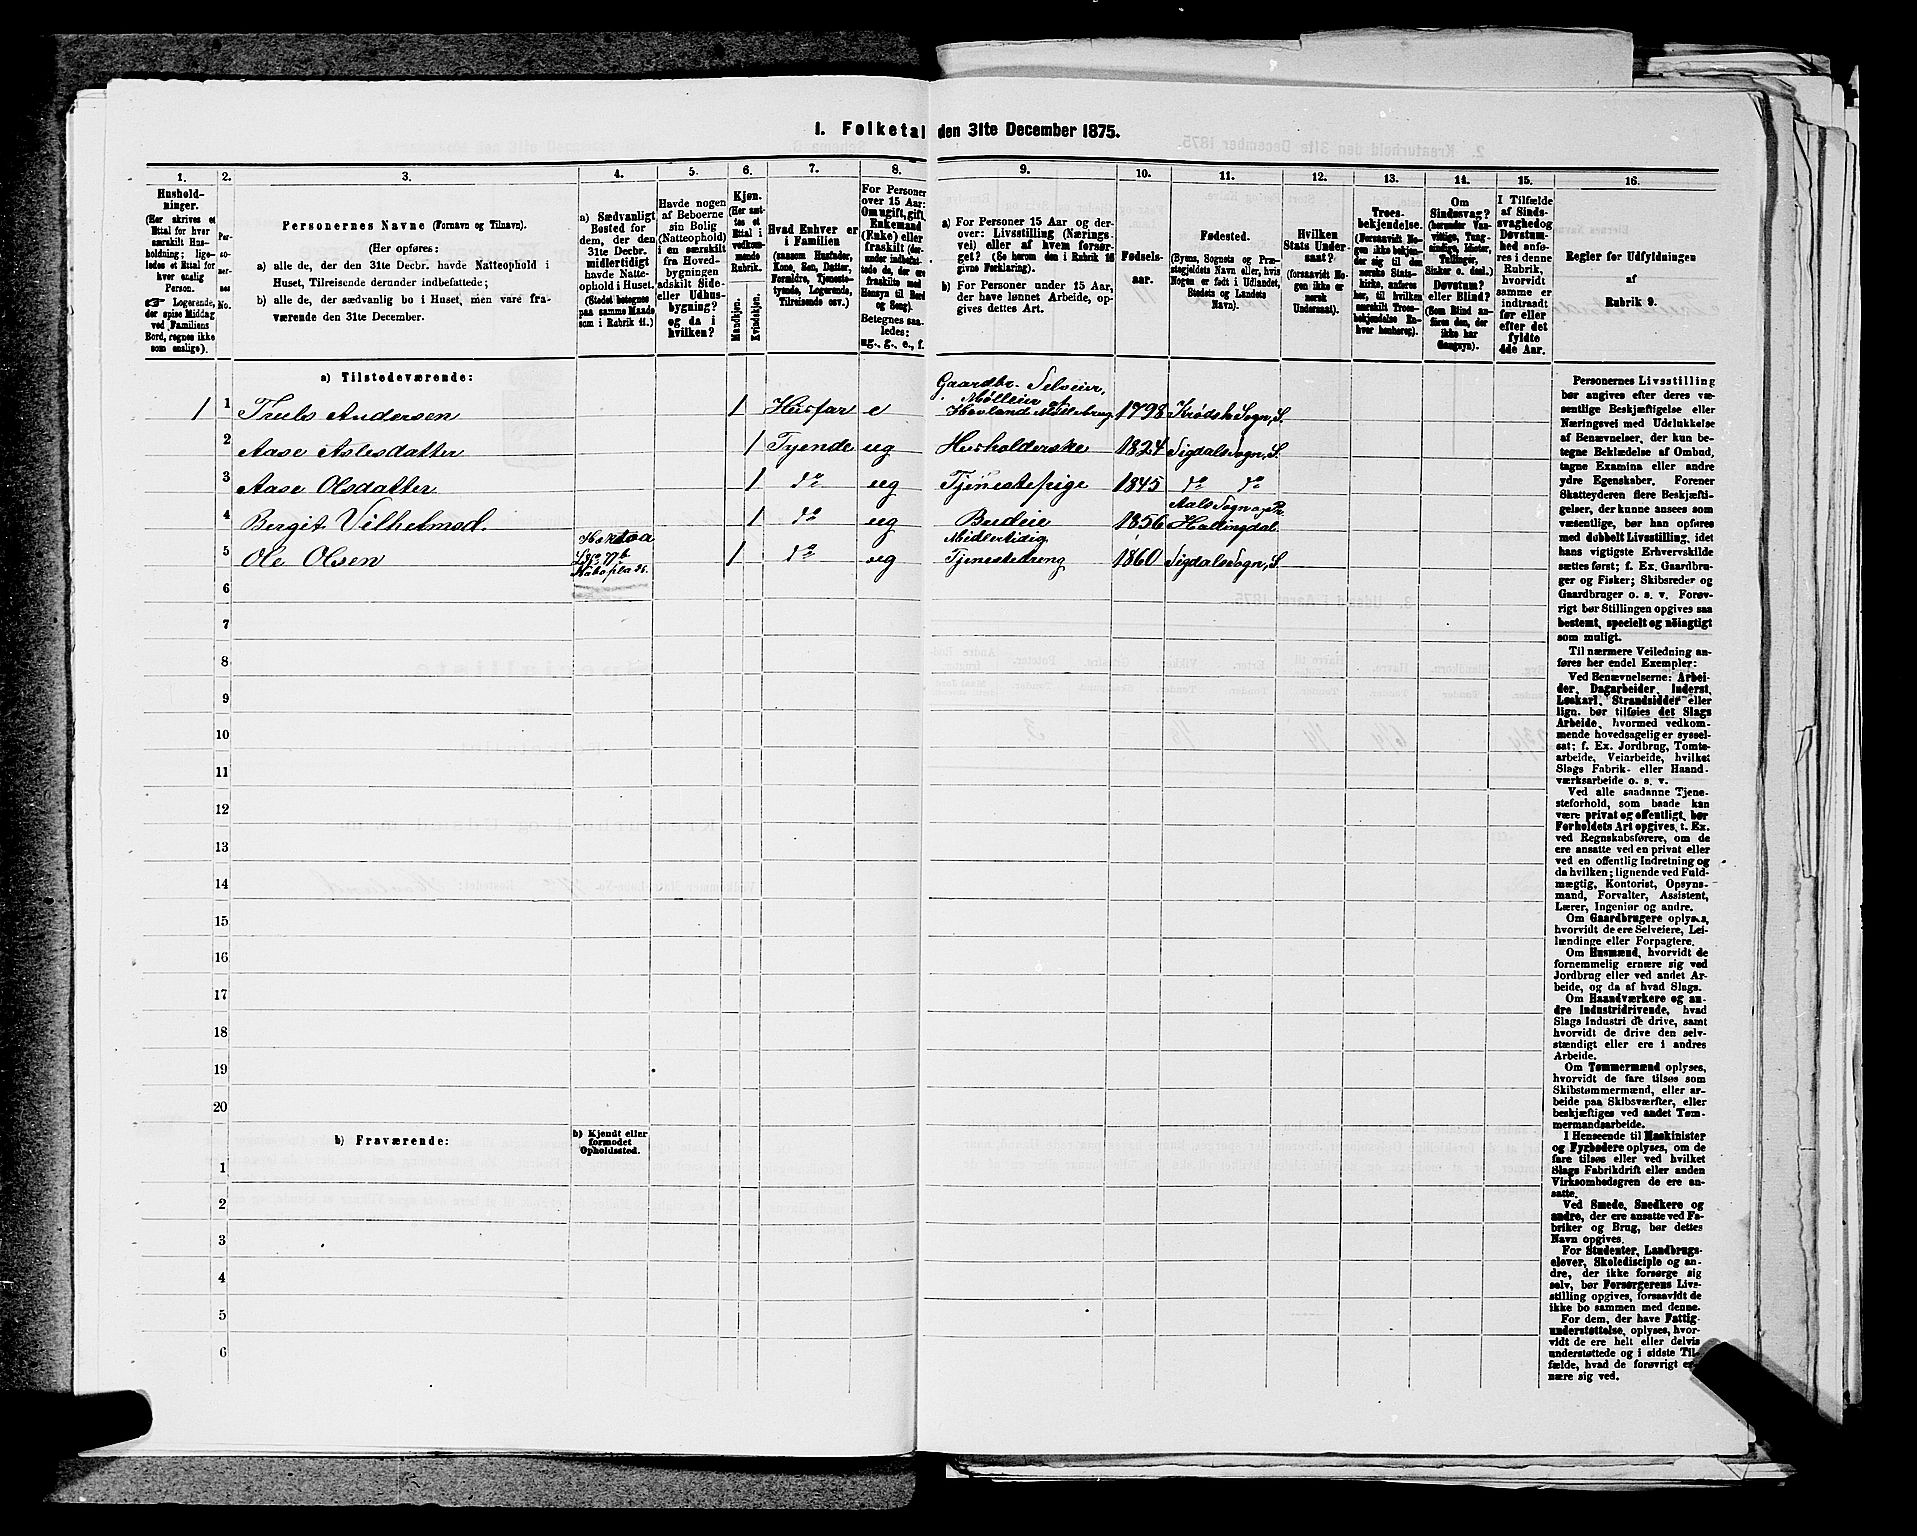 1. Folketal den 31te December 1875.
1.
Hushold-
ninger.
(Her skrives et
Ettal for hver
særskilt Hus-
holdning; lige-
ledes et Ettal for
hver enslig
Person.
Logerende,
der spise Middag
ved Familiens
Bord, regnes ikke
som enslige).
2.
Per-
so-
ner-
nes
No.
3.
Personernes Navne (Fornavn og Tilnavn).
(Her opføres:
a) alle de, der den 31te Decbr. havde Natteophold i
Huset, Tilreisende derunder indbefattede;
b) alle de, der sædvanlig bo i Huset, men vare fra-
værende den 31te December.
4.
a) Sædvanligt
Bosted for
dem, der den
31te Decbr.
midlertidigt
havde Natte-
ophold i Huset.
(Stedet betegnes
paa samme Maade
som i Rubrik 11.)
5.
Havde nogen
af Beboerne
sin Bolig
(Natteophold)
i en særskilt
fra Hoved-
bygningen
adskilt Side-
eller Udhus-
bygning?
og da i
hvilken?
6.
Kjøn.
(Her sæt-
tes et
Ettal i
vedkom-
mende
Rubrik.
Mandkjøn.
Kvindekjøn.
7.
Hvad Enhver er
i Familien
(saasom Husfader,
Kone, Søn, Datter,
Forældre, Tjeneste-
tyende, Logerende,
Tilreisende osv.)
8.
For Personer
over 15 Aar:
Om ugift, gift,
Enkemand
(Enke) eller
fraskilt (der-
under indbefat-
tede de, der ere
fraskilte med
Hensyn til Bord
og Seng).
Betegnes saa-
ledes:
ug., g., e., f.
9.
a) For Personer 15 Aar og der-
over: Livsstilling (Nærings-
vei) eller af hvem forsør-
get? (Se herom den i Rubrik 16
givne Forklaring).
b) For Personer under 15 Aar,
der have lønnet Arbeide, op-
gives dettes Art.
10.
Fødsels-
aar.
11.
Fødested.
(Byens, Sognets og Præ-
stegjeldets Navn eller, hvis
Nogen er født i Udlandet,
Stedets og Landets
Navn).
12.
Hvilken
Stats Under-
saat?
(forsaavidt No-
gen ikke er
norsk
Undersaat).
13.
Troes-
bekjendelse.
(Forsaavidt No-
gen ikke bekjen-
der sig til den
norske Stats-
kirke, anføres
her, til hvilken
særskilt Troes-
bekjendelse En-
hver henhører).
14.
Om
Sindssvag?
(herunder Van-
vittige, Tung-
sindige, Idioter,
Tullinger,
Sinker o. desl.)
Døvstum?
eller Blind?
(Som Blind an-
føres den, der
ikke har
Gangsyn).
15.
I Tilfælde
af Sinds-
svaghed og
Døvstum-
hed anfø-
res i denne
Rubrik,
hvorvidt
samme er
indtraadt
før eller
efter det
fyldte
4de Aar.
16.
Regler for Udfyldningen
af
Rubrik 9.
a) Tilstedeværende:
Gaardbr. Selveier,
Mølleier af
1 1 Truls Andersen 1 Husfar e Hovland Møllebrug 1798 Krødsh. Sogn, S.
2 Aase Aslesdatter 1 Tyende ug Husholderske 1824 Sigdals Sogn, S.
3 Aase Olsdatter 1 do ug Tjenestepige 1845 do do
Aals Sogn og Pr.
4 Bergit Vilhelmsd. 1 do ug Budeie 1856 Hallingdal
Midlertidig
5 Ole Olsen 1 do ug Tjenestedreng 1860 Sigdals Sogn, S
6
7
8
9
10
11
12
13
14
15
16
17
18
19
20
b) Fraværende:
b) Kjendt eller
formodet
Opholdssted.
1
2
3
4
5
6
Personernes Livsstilling
bør angives efter deres væ-
sentlige Beskjæftigelse eller
Næringsvei med Udelukkelse
af Benævnelser, der kun be-
tegne Beklædelse af Ombud,
tagne Examina eller andre
ydre Egenskaber. Forener
Skatteyderen flere Beskjæfti-
gelser, der kunne ansees som
væsentlige, bør han opføres
med dobbelt Livsstilling, idet
hans vigtigste Erhvervskilde
sættes først; f. Ex. Gaardbru-
ger og Fisker; Skibsreder og
Gaardbruger o. s. v. Forøv-
rigt bør Stillingen opgives saa
bestemt, specielt og nöiagtigt
som muligt.
Til nærmere Veiledning an-
føres her endel Exempler:
Ved Benævnelserne: Arbei-
der, Dagarbeider, Inderst,
Løskarl, Strandsidder eller
lign. bør tilføies det Slags
Arbeide, hvormed vedkom-
mende hovedsagelig er syssel-
sat; f. Ex. Jordbrug, Tomte-
arbeide, Veiarbeide, hvilket
Slags Fabrik- eller Haand-
værksarbeide o. s. v.
Ved alle saadanne Tjene-
steforhold, som baade kan
være privat og offentligt, bør
Forholdets Art opgives, t. Ex.
ved Regnskabsførere, om de
ere ansatte ved en privat eller
ved en offentlig Indretning og
da hvilken; lignende ved Fuld-
mægtig, Kontorist, Opsyns-
mand, Forvalter, Assistent,
Lærer, Ingeniør og andre.
Om Gaardbrugere oplyses,
hvorvidt de ere Selveiere, Lei-
lændinge eller Forpagtere.
Om Husmænd, hvorvidt de
fornemmelig ernære sig ved
Jordbrug eller ved andet Ar-
beide, og da af hvad Slags.
Om Haandværkere og an-
dre Industridrivende, hvad
Slags Industri de drive, samt
hvorvidt de drive den selv-
stændigt eller ere i andres
Arbeide.
Om Tømmermænd oplyses,
hvorvidt de fare tilsøs som
Skibstømmermænd, eller ar-
beide paa Skibsværfter, eller
beskjæftiges ved andet Tøm-
mermandsarbeide.
I Henseende til Maskinister
og Fyrbødere oplyses, om de
fare tilsøs eller ved hvilket
Slags Fabrikdrift eller anden
Virksomhedsgren de ere an-
satte.
Ved Smede, Snedkere og
andre, der ere ansatte ved Fa-
briker og Brug, bør dettes
Navn opgives.
For Studenter, Landbrugs-
elever, Skoledisciple og an-
dre, der ikke forsørge sig
selv, bør Forsørgerens Livs-
stilling opgives, forsaavidt de
ikke bo sammen med denne.
For dem, der have Fattig-
understøttelse, oplyses, hvor-
vidt de ere helt eller delvis
understøttede og i sidste Til-
fælde, hvad de forøvrigt er-
nære sig ved.